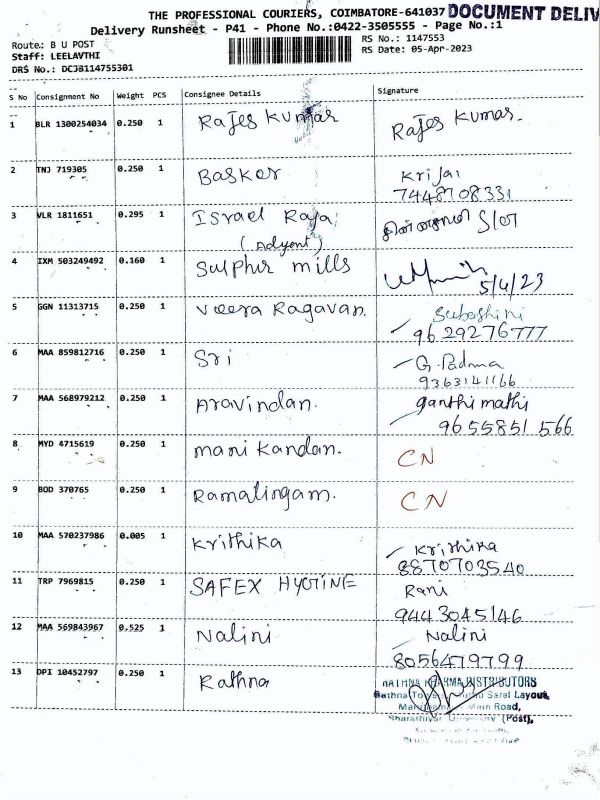 THE PROFESSIONAL COURIERS, COIMBATORE-641037 DOCUMENT DELIV
Delivery Runsheet - P41 - Phone No.:0422-3505555 - Page No.:1
Route.: B U POST
Staff: LEELAVTHI
DRS No.: DCJB114755301
RS No.: 1147553
RS Date: 05-Apr-2023
S No Consignment No Weight PCS Consignee Details Signature
1 BLR 1300254034 0.250 1 Rajes Kumar Rajes Kumar.
2 TNJ 719305 0.250 1 Basker Krijai
7448708331
3 VLR 1811651 0.295 1 Israel Raja S/o1
(Adyont)
4 IXM 503249492 0.160 1 Sulphur mills 5/4/23
5 GGN 11313715 0.250 1 Veera Ragavan. Subashini
9629276777
6 MAA 859812716 0.250 1 Sri G. Padma
9363141166
7 MAA 568979212 0.250 1 Aravindan. ganthimathi
9655851566
8 MYD 4715619 0.250 1 mani kandan. CN
9 BOD 370765 0.250 1 Ramalingam. CN
10 MAA 570237986 0.005 1 Krithika Krithika
8870703540
11 TRP 7969815 0.250 1 SAFEX HYGINE Rani
9443045146
12 MAA 569843967 0.525 1 Nalini Nalini
8056479799
13 DPI 10452797 0.250 1 Rathna RATHNA PHARMA DISTRIBUTORS
Saral Layout,
Main Road,
Bharathiyar University (Post),